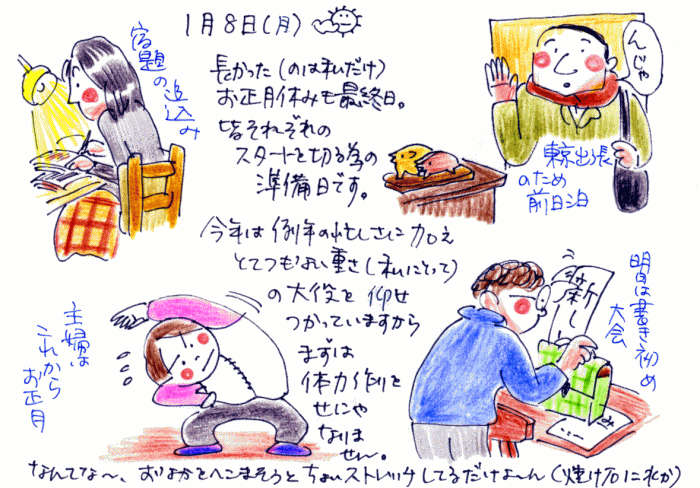 1月8日(月)
長かった(のは私だけ)
お正月休みも最終日。
皆それぞれの
スタートを切る為の
準備日です。
今年は例年の忙しさに加え
とてつもない重さ(私にとって)
の大役を仰せ
つかっていますから
まずは
体力作りを
せにゃ
なりま
せ〜ん。
なんてな〜、おなかをへこまそうとちょいストレッチしてるだけよ〜ん(焼け石に水か)
宿題の追込み
んじゃ
東京出張
のため
前日泊
主婦は
これから
お正月
明日は書き初め
大会
新し
み